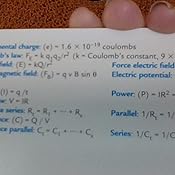 mental charge: (e) = 1.6 × 10⁻¹⁹ coulombs
b's law: F_E = k q₁q₂/r² (k = Coulomb's constant, 9 ×
field: (E) = kQ/r²
Force electric field:
agnetic field: (F_B) = q v B sin θ
Electric potential:
(I) = q/t
Power: (P) = IR² =
w: V = IR
e series: R_s = R₁ + ··· + R
Parallel: 1/R
nce: (C) = Q / V
ce parallel: C = C₁ + ··· + C
Series: 1/C = 1/C